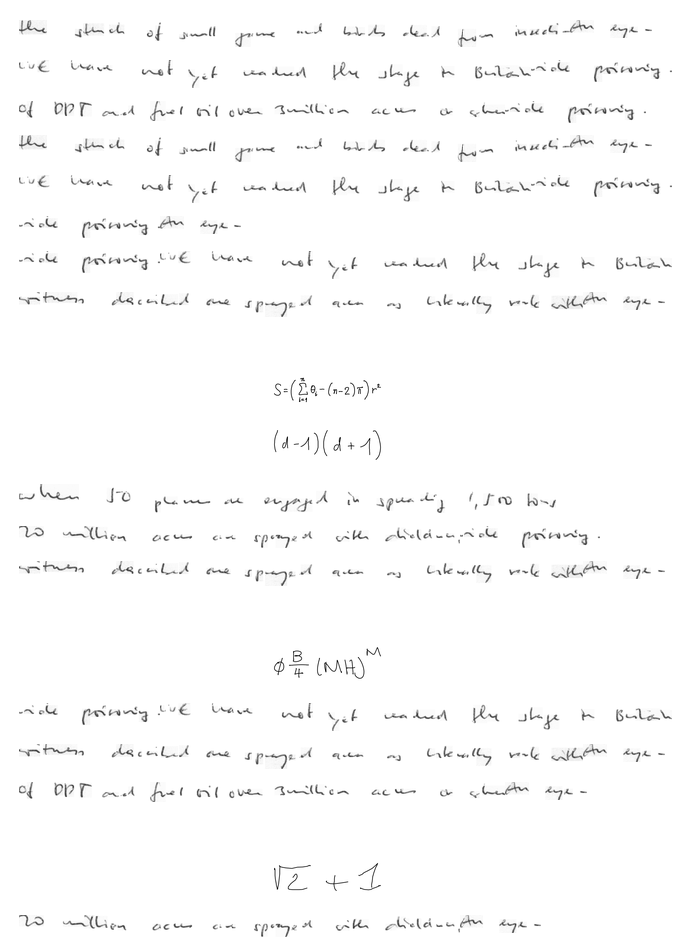 the stench of small game and birds dead from insecti-An eye-
WE have not yet reached the stage in Britain-ide poisoning.
of DDT and fuel oil over 3 million acres or where-ide poisoning.
the stench of small game and birds dead from insecti-An eye-
WE have not yet reached the stage in Britain-ide poisoning.
-ide poisoning An eye-
-ide poisoning. WE have not yet reached the stage in Britain
witness described one sprayed area as literally rank with An eye-
S=(\sum_{i=1}^{n} θ_i-(n-2)π)r^2
(d-1)(d+1)
when 50 planes are engaged in spreading 1,500 tons
20 million acres are sprayed with dieldrin,-ide poisoning.
witness described one sprayed area as literally rank with An eye-
φ \frac{B}{4} (MH)^M
-ide poisoning. WE have not yet reached the stage in Britain
witness described one sprayed area as literally rank with An eye-
of DDT and fuel oil over 3 million acres or where An eye-
√2 + 1
20 million acres are sprayed with dieldrin, An eye-